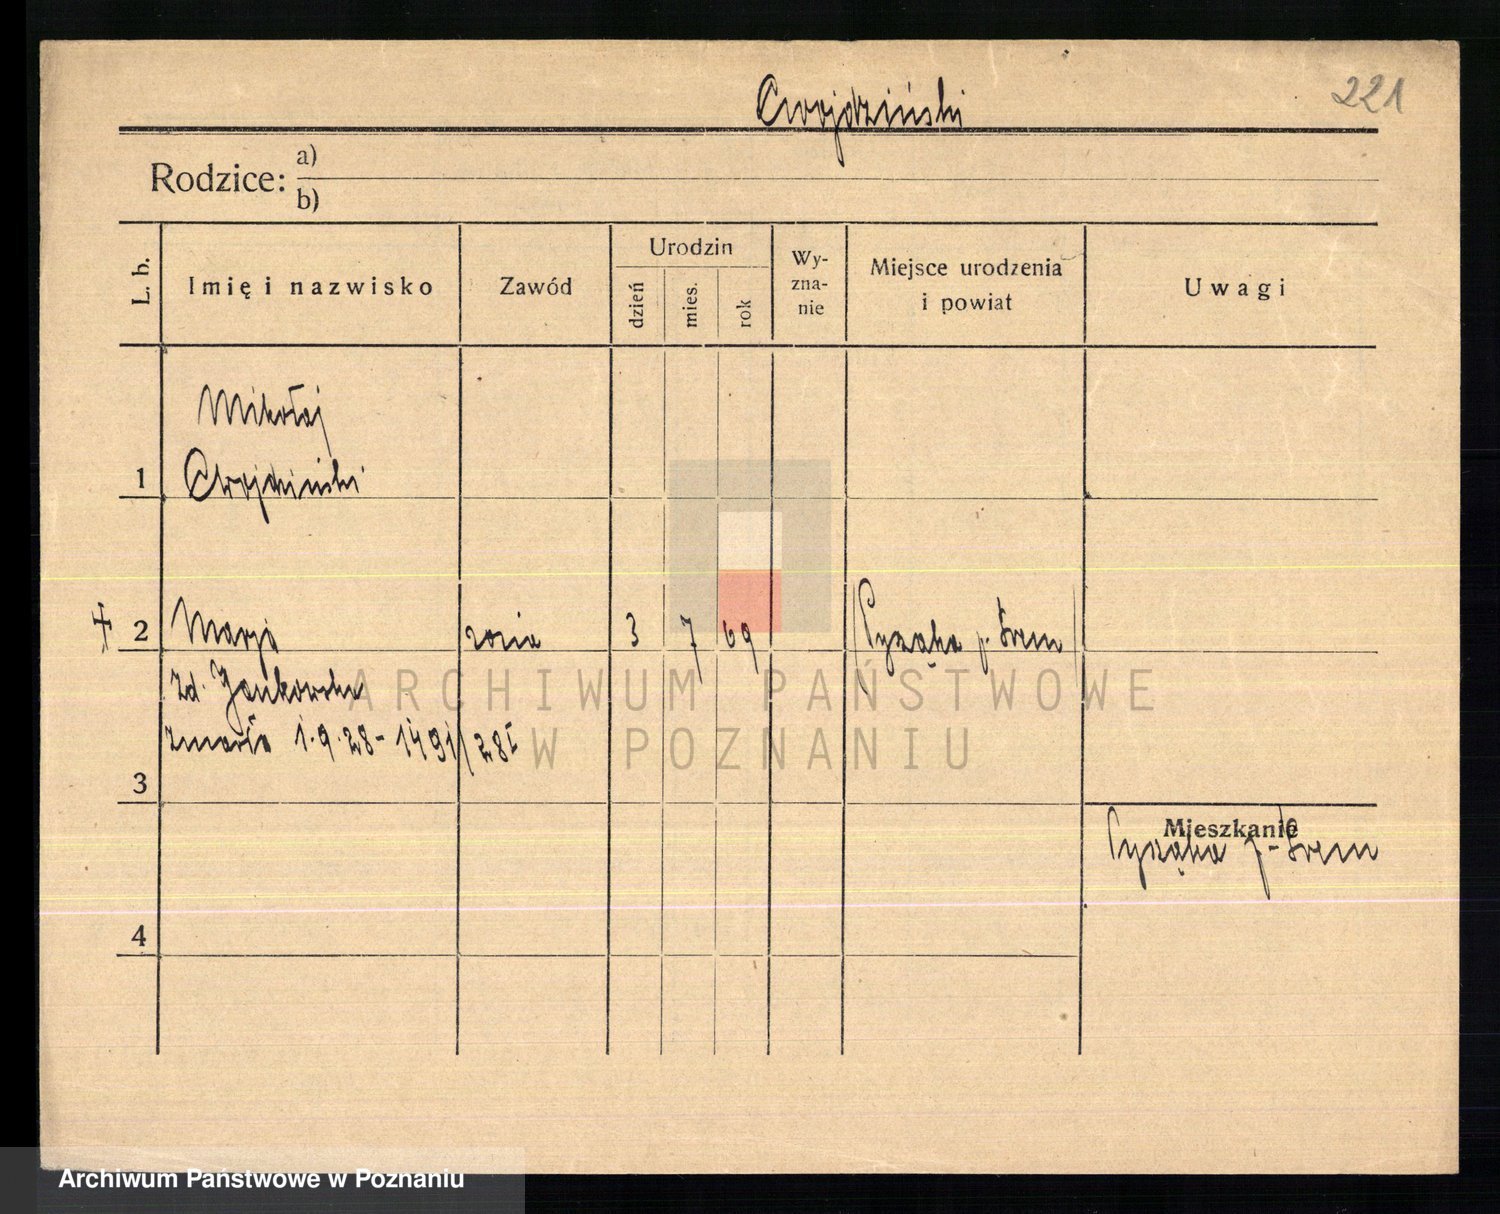 Cwojdziński
221
Rodzice: a)
b)
L. b.
Imię i nazwisko
Zawód
Urodzin
dzień
mies.
rok
Wy-
zna-
nie
Miejsce urodzenia
i powiat
Uwagi
Mikołaj
1 Cwojdziński
2 Marja
żona 3 7 69 Pysząca p. Śrem
zd. Jankowska
zmarła 1.9.28 - 1491/28
3
Mieszkanie
Pysząca p. Śrem
4
ARCHIWUM PAŃSTWOWE
W POZNANIU
Archiwum Państwowe w Poznaniu